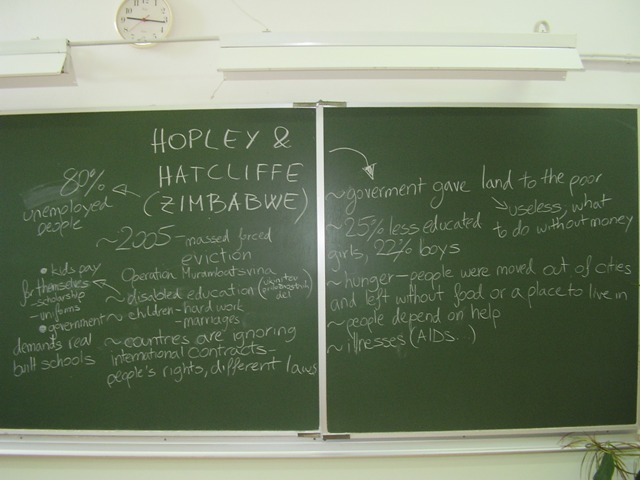 HOPLEY &
HATCLIFFE
(ZIMBABWE)
80%
unemployed
people
~2005 - massed forced
eviction
Operation Murambatsvina
• kids pay
for themselves
- scholarship
- uniforms
• government
demands real
built schools
~ disabled education
~ children - hard work
- marriages
~ countries are ignoring
international contracts
people's rights, different laws
~ goverment gave land to the poor
useless, what
to do without money
~ 25% less educated
girls, 22% boys
~ hunger - people were moved out of cities
and left without food or a place to live in
~ people depend on help
~ illnesses (AIDS...)